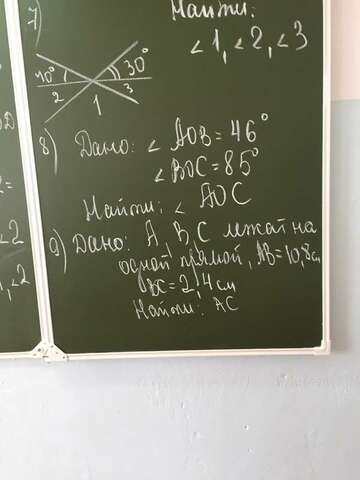 7)
Найти:
∠1, ∠2, ∠3
40° 30°
2 1 3
8) Дано: ∠ AOB = 46°
∠BOC = 85°
Найти: ∠ AOC
9) Дано: A, B, C лежат на
одной прямой, AB = 10,8 см
BC = 2,4 см
Найти: AC